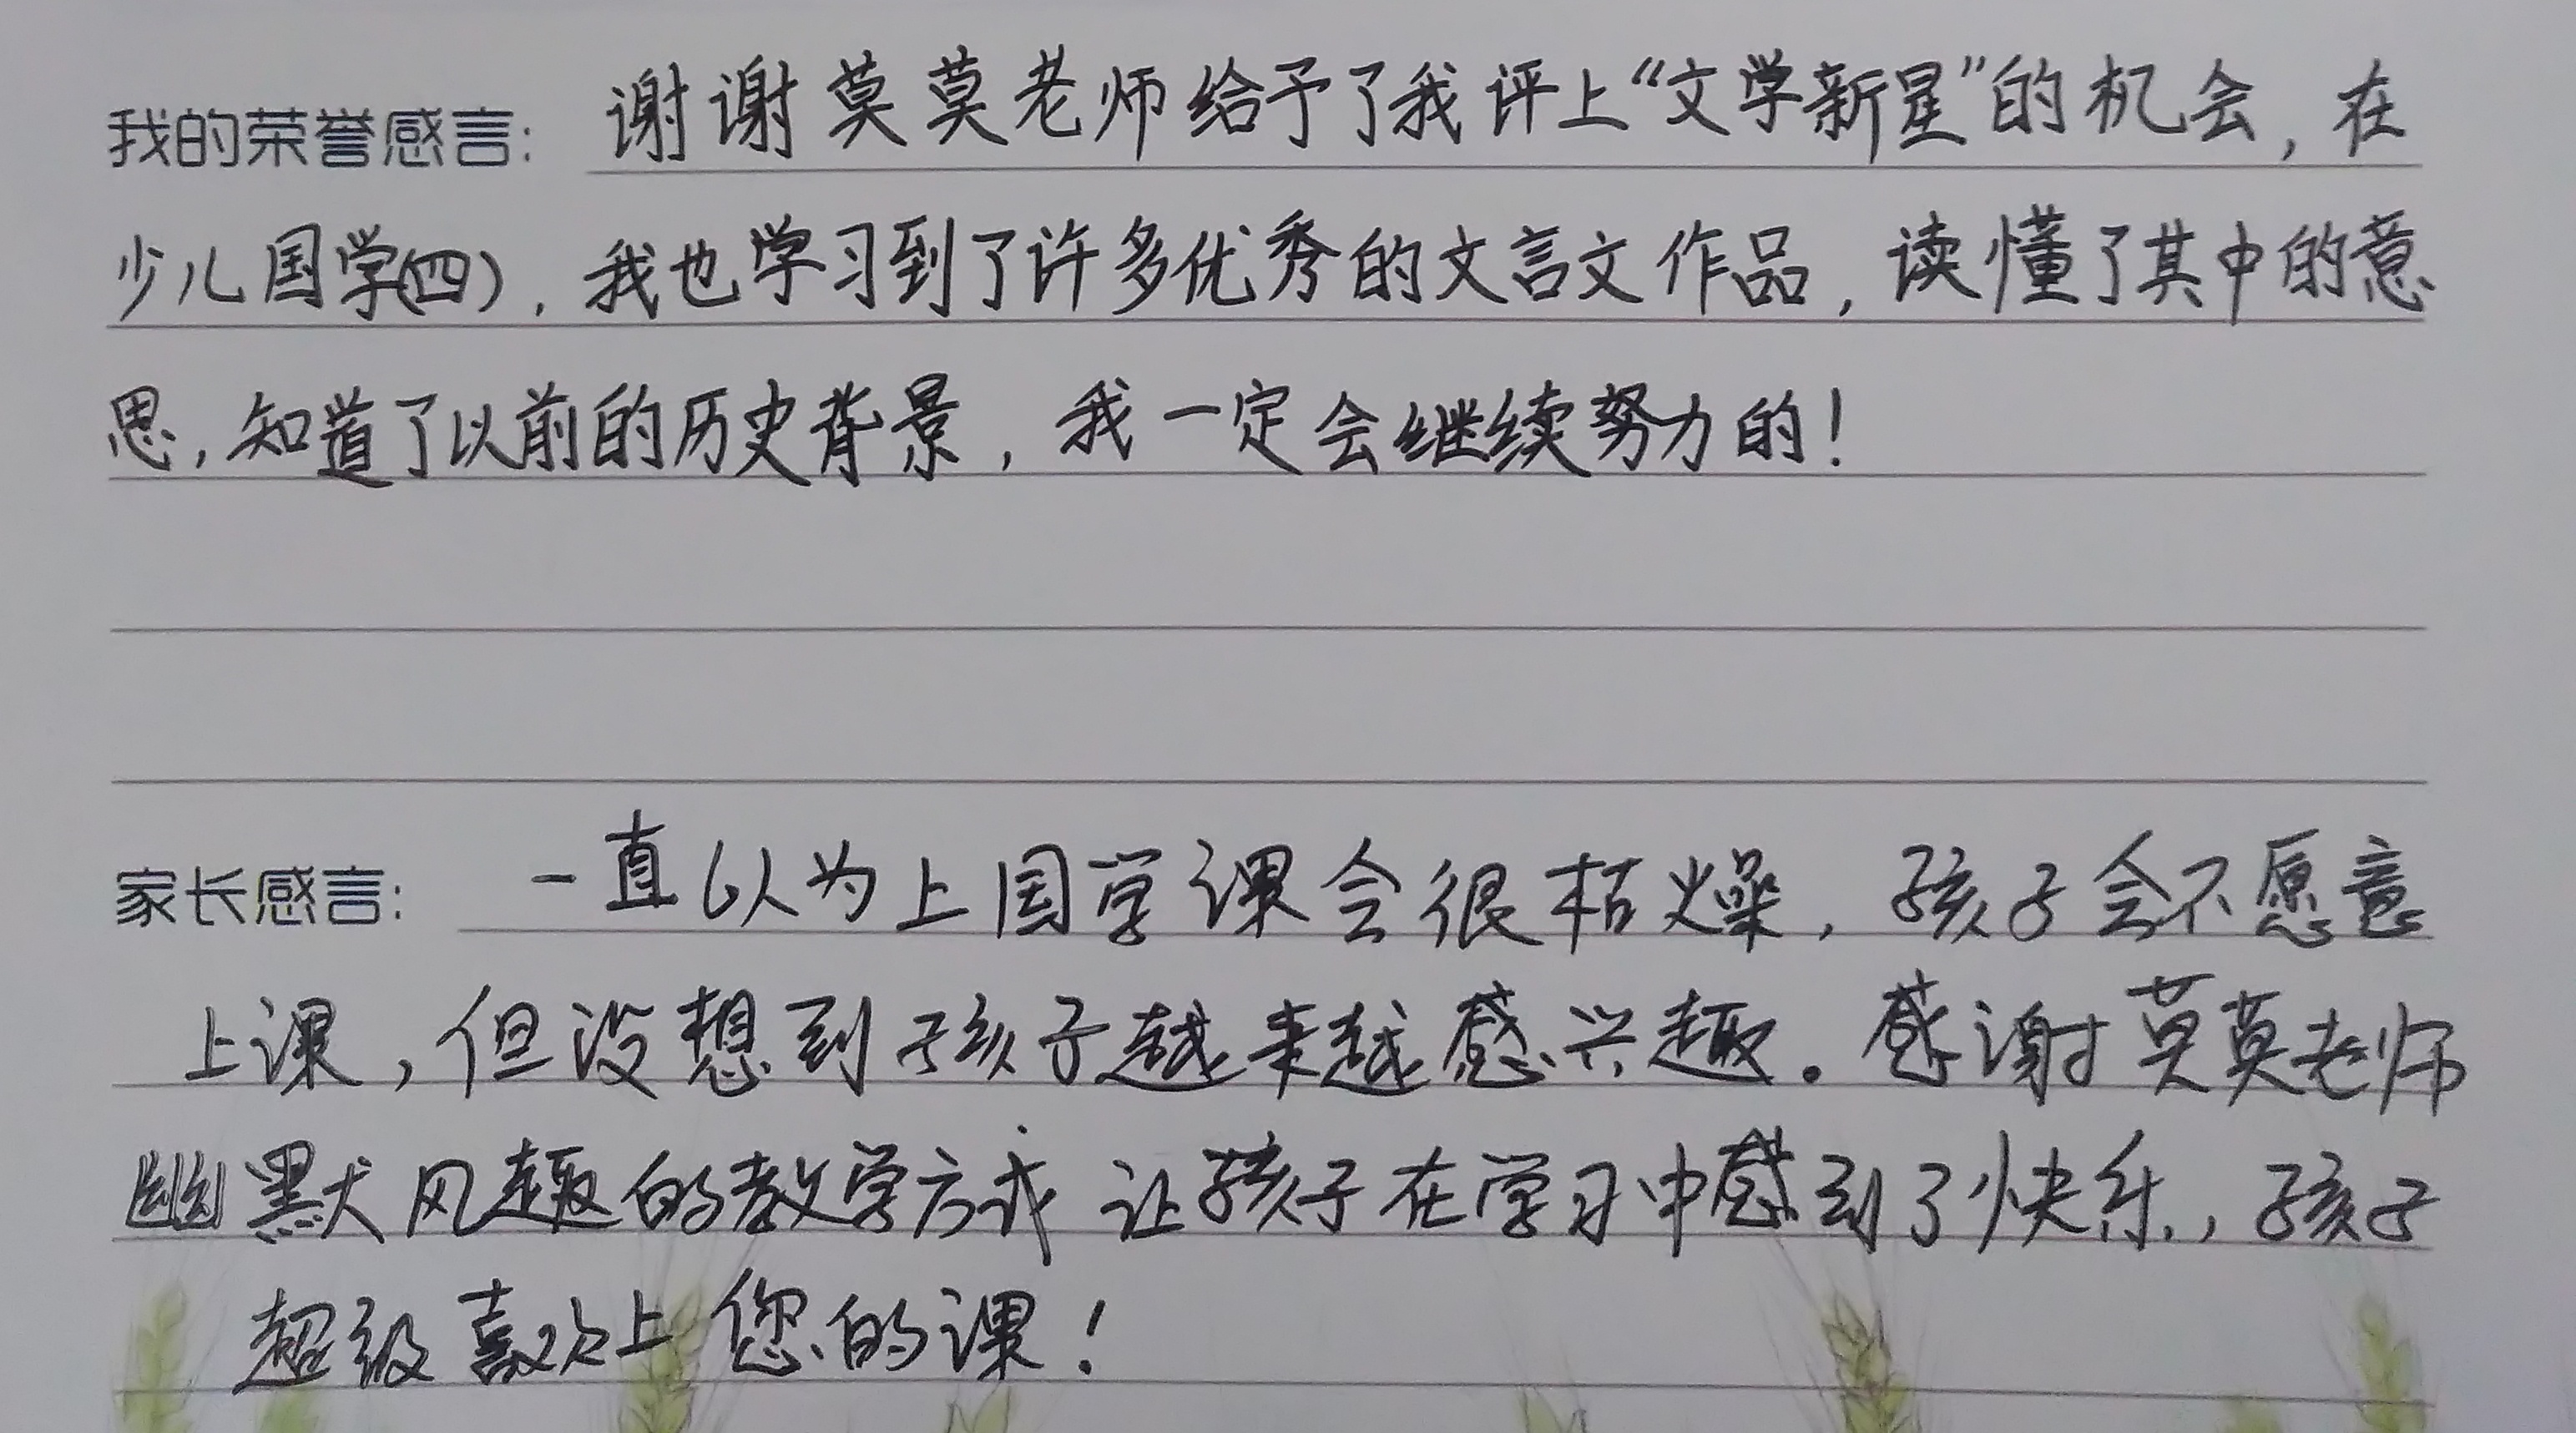 我的荣誉感言: 谢谢莫莫老师给予了我评上“文学新星”的机会,在
少儿国学(四),我也学习到了许多优秀的文言文作品,读懂了其中的意
思,知道了以前的历史背景,我一定会继续努力的!
家长感言: 一直以为上国学课会很枯燥,孩子会不愿意
上课,但没想到孩子越来越感兴趣。感谢莫莫老师
幽默风趣的教学方式 让孩子在学习中感到了快乐,孩子
超级喜欢上您的课!